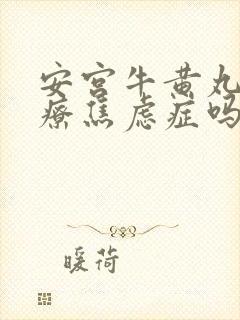 安宫牛黄丸
疗焦虑症吗
暖荷